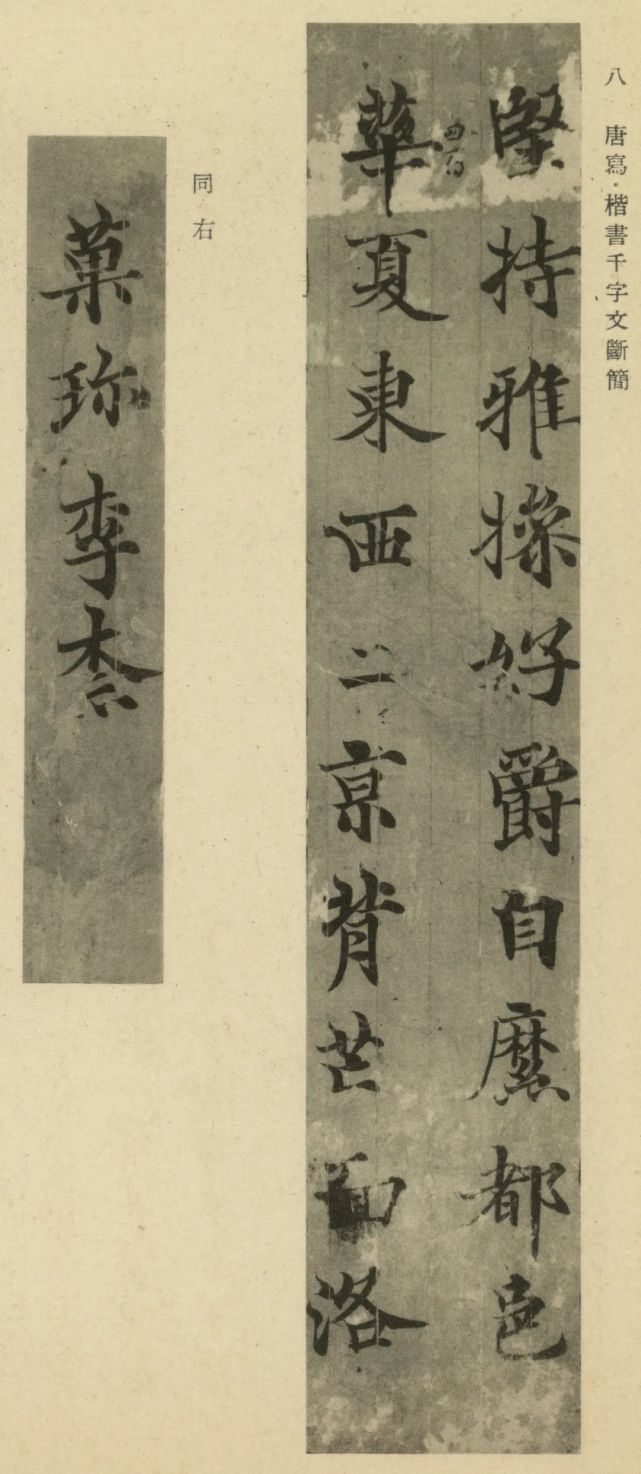 八 唐寫・楷書千字文斷簡
堅持雅操好爵自縻都邑
華夏東西二京背芒面洛
同右
菓珎李柰